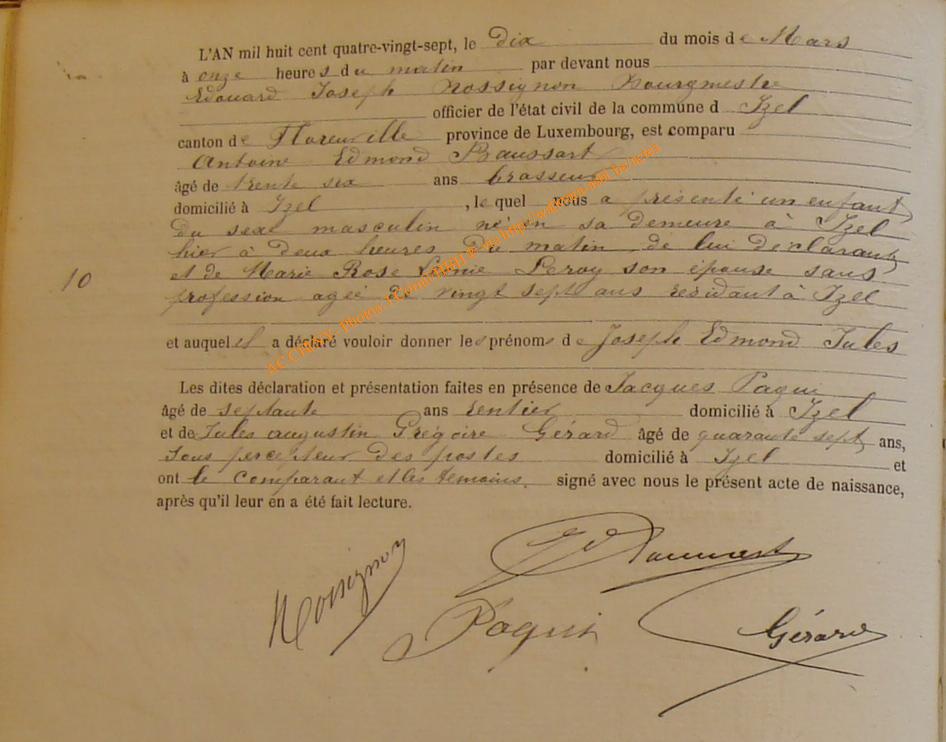 L'AN mil huit cent quatre-vingt-sept, le dix du mois de Mars
à onze heures du matin par devant nous
Edouard Joseph Rossignon Bourgmestre
officier de l'état civil de la commune d Izel
canton de Florenville province de Luxembourg, est comparu
Antoine Edmond Baussart
âgé de trente six ans brasseur
domicilié à Izel, le quel nous a présenté un enfant
du sexe masculin né en sa demeure à Izel
hier à deux heures du matin de lui déclarant
et de Marie Rose Léonie Leroy son épouse sans
profession agée de vingt sept ans résidant à Izel
10
et auquel il a déclaré vouloir donner les prénoms de Joseph Edmond Jules
Les dites déclaration et présentation faites en présence de Jacques Paqui
âgé de septante ans rentier domicilié à Izel
et de Jules augustin Grégoire Gérard âgé de quarante sept ans,
Sous percepteur des postes domicilié à Izel et
ont le comparant et les témoins. signé avec nous le présent acte de naissance,
après qu'il leur en a été fait lecture.
Rossignon Ed Baussart
Paqui Gérard
AC CHINY- Photos